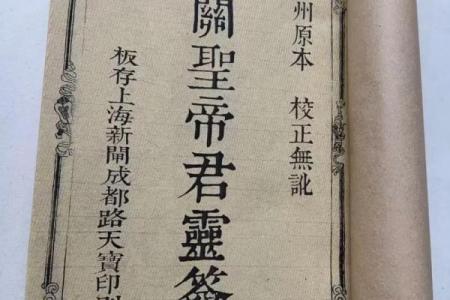 州原本 校正無訛
關聖帝君靈籤
板存上海新閘成都路天寶印